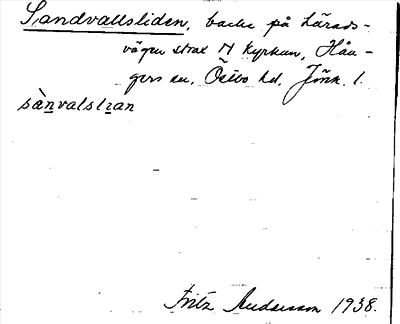 Sandvallsliden, backe på härads-
vägen strax N kyrkan, Håu-
gers sn, Östbo hd, Jönk. l.
sàn̲valsli̲an
Fritz Andersson 1938.